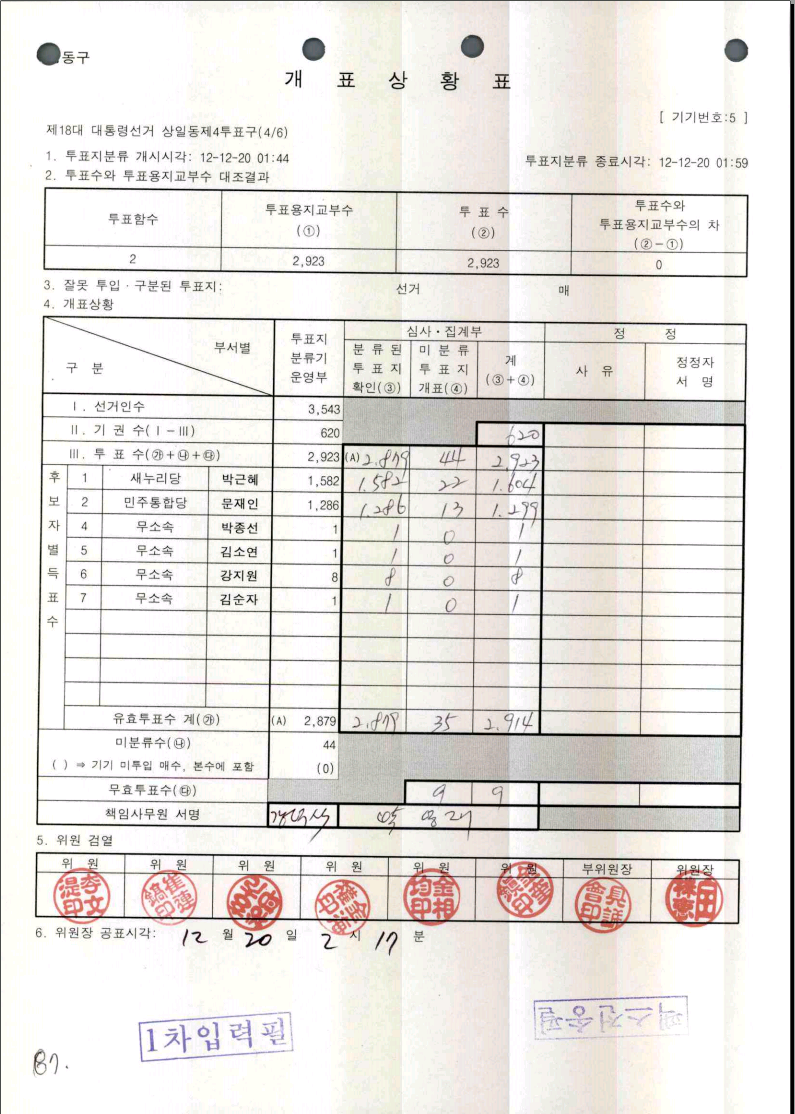 동구
개 표 상 황 표
[ 기기번호:5 ]
제18대 대통령선거 상일동제4투표구(4/6)
1. 투표지분류 개시시각: 12-12-20 01:44
투표지분류 종료시각: 12-12-20 01:59
2. 투표수와 투표용지교부수 대조결과
투표함수 투표용지교부수 (①) 투 표 수 (②) 투표수와 투표용지교부수의 차 (②-①)
2 2,923 2,923 0
3. 잘못 투입·구분된 투표지: 선거 매
4. 개표상황
구 분 부서별 투표지 분류기 운영부 심사·집계부 정 정
분 류 된 투 표 지 확인(③) 미 분 류 투 표 지 개표(④) 계 (③+④) 사 유 정정자 서 명
Ⅰ. 선거인수 3,543
Ⅱ. 기 권 수(Ⅰ-Ⅲ) 620 620
Ⅲ. 투 표 수(㉮+㉯+㉰) 2,923 (A) 2.879 44 2.923
후보자별득표수
1 새누리당 박근혜 1,582 1.582 22 1.604
2 민주통합당 문재인 1,286 1.286 13 1.299
4 무소속 박종선 1 1 0 1
5 무소속 김소연 1 1 0 1
6 무소속 강지원 8 8 0 8
7 무소속 김순자 1 1 0 1
유효투표수 계(㉮) (A) 2,879 2.879 35 2.914
미분류수(㉯) 44
( ) ⇒ 기기 미투입 매수, 본수에 포함 (0)
무효투표수(㉰) 9 9
책임사무원 서명
5. 위원 검열
위 원 위 원 위 원 위 원 위 원 위 원 부위원장 위원장
6. 위원장 공표시각: 12 월 20 일 2 시 17 분
1차입력필
팩스전송필
87.